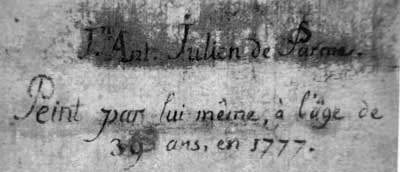 J.n Ant. Julien de Parme.
Peint par lui même, à l'âge de
39 ans, en 1777.